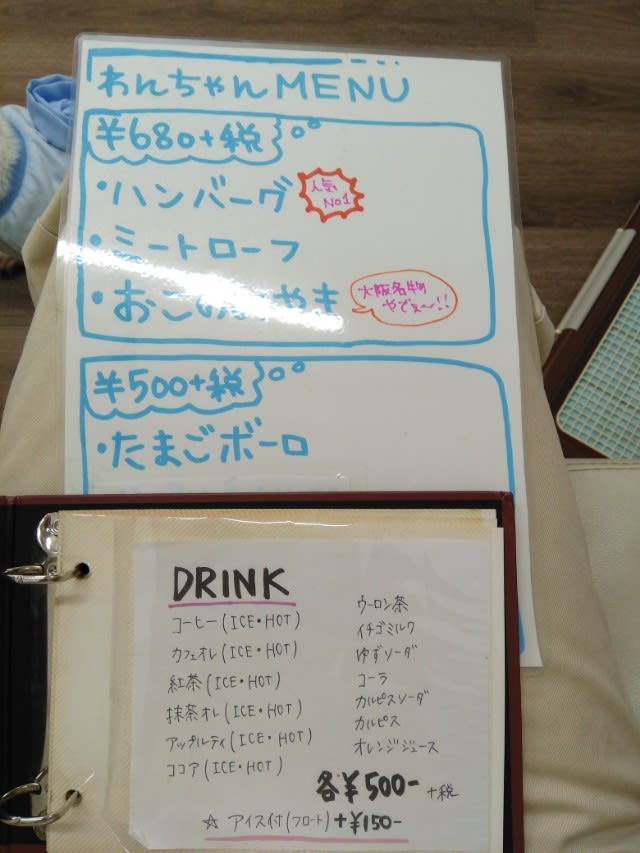 わんちゃんMENU
¥680+税
・ハンバーグ
人気
No1
・ミートローフ
・おこのみやき
大阪名物
やでぇ〜!!
¥500+税
・たまごボーロ
DRINK
コーヒー(ICE・HOT)
カフェオレ(ICE・HOT)
紅茶(ICE・HOT)
抹茶オレ(ICE・HOT)
アップルティ(ICE・HOT)
ココア(ICE・HOT)
ウーロン茶
イチゴミルク
ゆずソーダ
コーラ
カルピスソーダ
カルピス
オレンジジュース
各¥500- +税
☆ アイス付(フロート)+¥150-